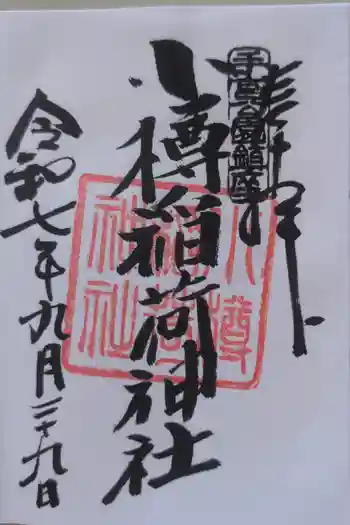 奉拝
小樽稲荷神社
令和七年九月二十九日
小樽
稲荷
神社